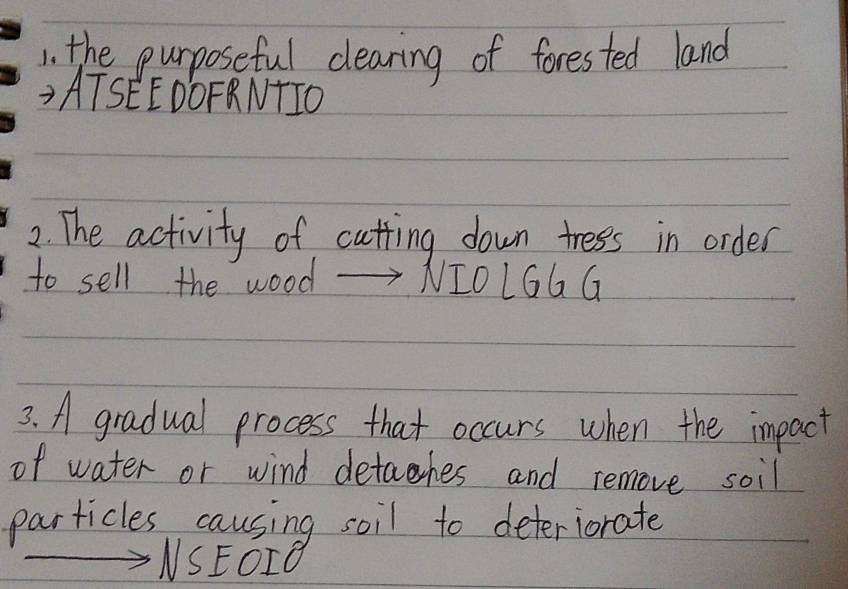 1. the purposeful clearing of forested land
→ ATSEEDOFRNTIO
2. The activity of cutting down tress in order
to sell the wood → NIOLGGG
3. A gradual process that occurs when the impact
of water or wind detaches and remove soil
particles causing soil to deteriorate
→ NSEOIO